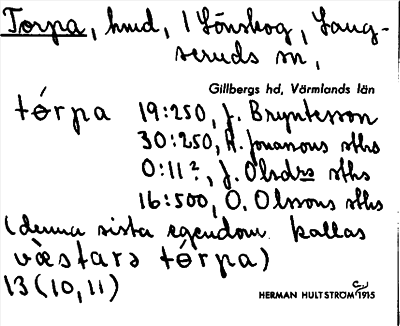 Torpa, hmd, i Lönskog, Laug-
seruds sn,
Gillbergs hd, Värmlands län
tǿrpa 19:250, J. Bryntesson
30:250, A. Jonassons sthus
0:11?, J. Olsdrs sthus
16:500, O. Olssons sthus
(denna sista egendom kallas
væstarə tǿrpa)
13(10,11)
HERMAN HULTSTRÖM 1915